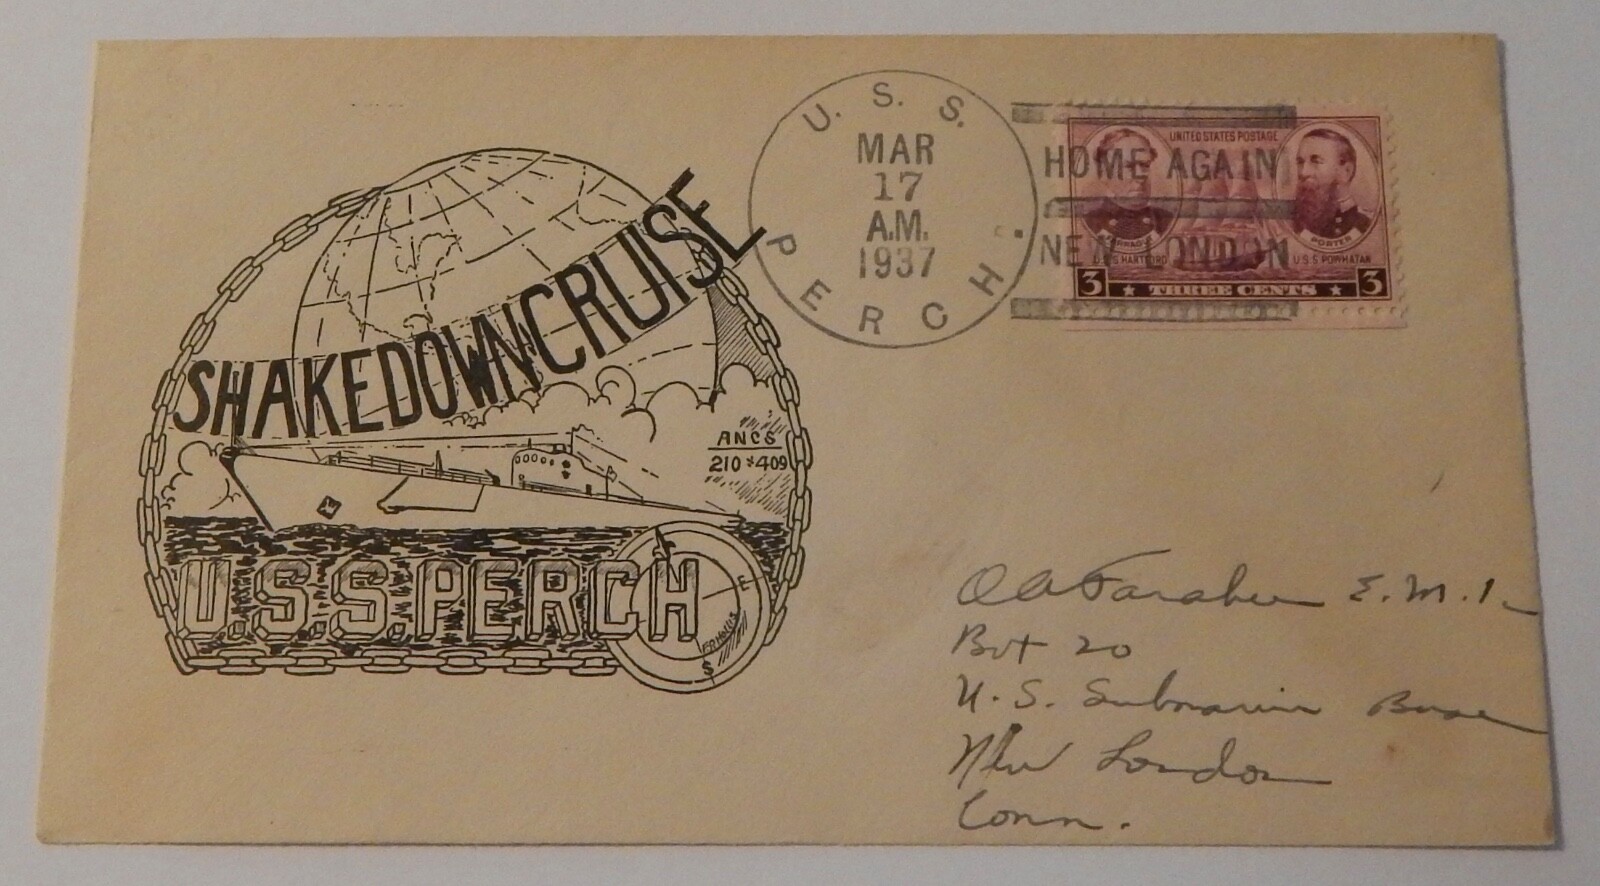 SHAKEDOWN CRUISE
ANCS
210 $ 409
U.S.S. PERCH
E
S
U. S. S.
PERCH
MAR
17
A.M.
1937
HOME AGAIN
NEW LONDON
UNITED STATES POSTAGE
FARRAGUT
PORTER
U.S.S. HARTFORD
U.S.S. POWHATAN
3 THREE CENTS 3
E.M.1
Box 20
U.S. Submarine Base
New London
Conn.